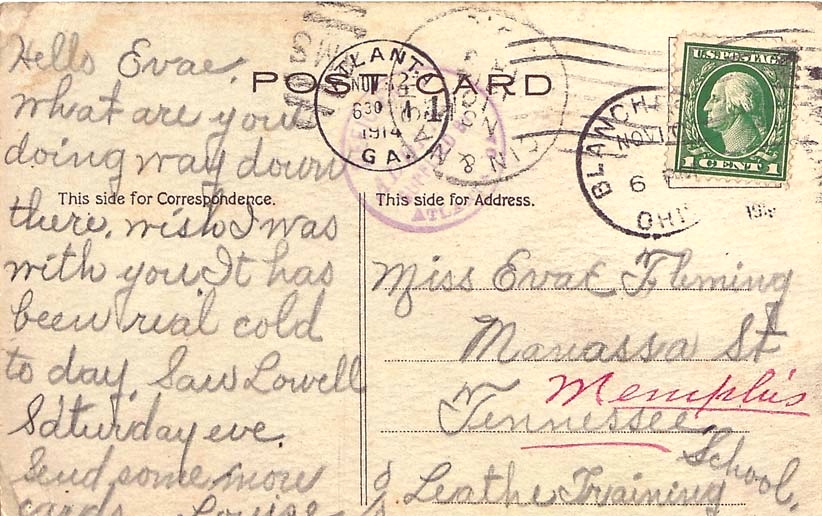 Hello Evae,
what are you
doing way down
there, wish I was
with you. It has
been real cold
to day. Saw Lowell
Saturday eve.
Send some more
cards. Louise
POST CARD
This side for Correspondence.
This side for Address.
ATLANTA
NOV
630
1914
GA.
1
CIN &
ATLA
BLANCH
NOV
6 P
OHI
191
U.S. POSTAGE
1 CENT 1
Miss Evae Fleming
Manassa St
Memphis
Tennessee
School,
% Leathe Training